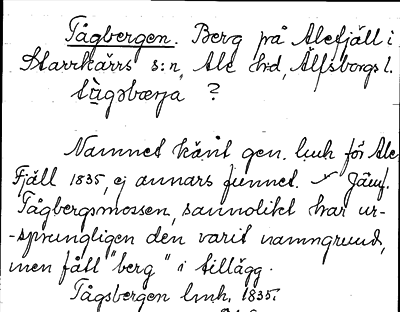 Tågbergen. Berg på Alefjäll i
Starrkärrs s:n, Ale hd, Älfsborgs l.
tågsbærja ?
Namnet känt gen. lmk för Ale
Fjäll 1835, ej annars funnet. Jämf.
Tågbergsmossen, sannolikt har ur-
-sprungligen den varit namngrund,
men fått "berg" i tillägg.
Tågsbergen lmk. 1835.